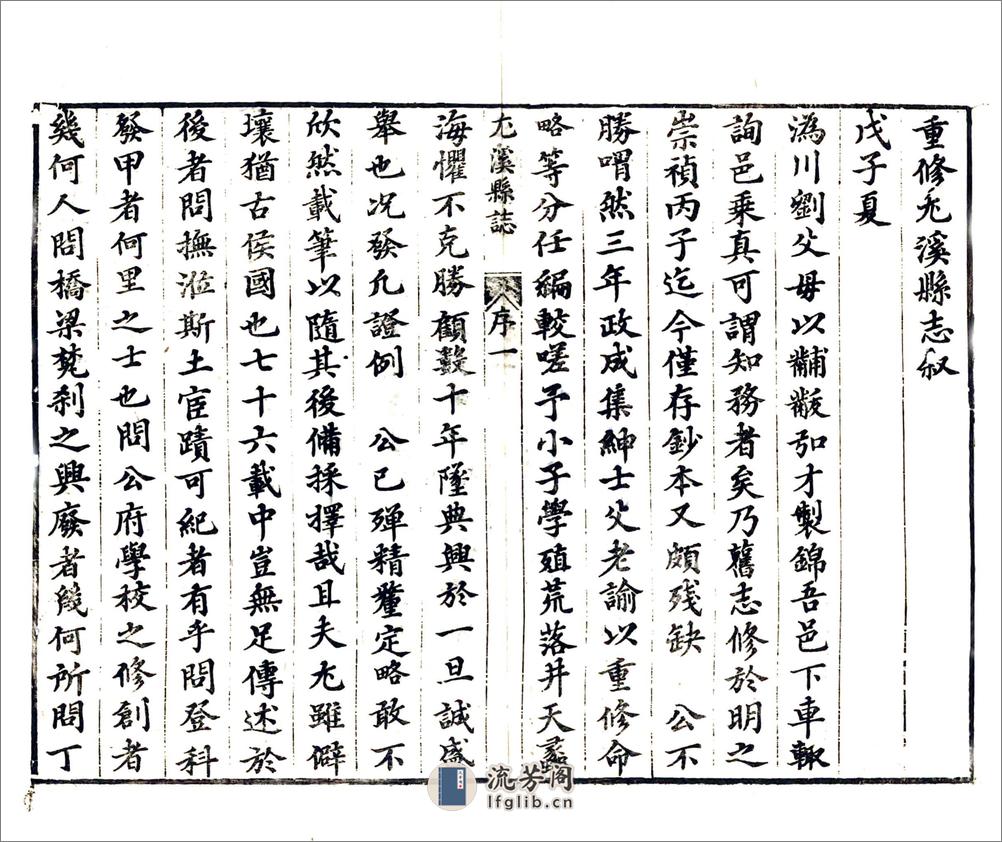 重修尤溪縣志叙
戊子夏
溈川劉父母以黼黻弘才製錦吾邑下車輙
詢邑乘真可謂知務者矣乃舊志修於明之
崇禎丙子迄今僅存鈔本又頗残缺　公不
勝喟然三年政成集紳士父老諭以重修命
略等分任編較嗟予小子學殖荒落井天蠡
尤溪縣誌　序一
海懼不克勝顧數十年墜典興於一旦誠盛
舉也况發凡證例　公已殫精釐定略敢不
欣然載筆以隨其後備採擇哉且夫尤雖僻
壤猶古侯國也七十六載中豈無足傳述於
後者問撫涖斯土宦蹟可紀者有乎問登科
發甲者何里之士也問公府學校之修創者
幾何人問橋梁梵刹之興廢者幾何所問丁
流芳阁
lfglib.cn